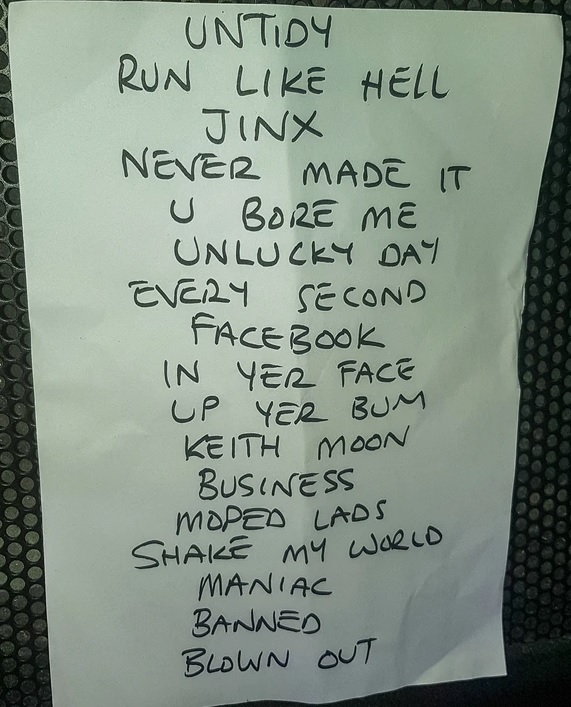 UNTIDY
RUN LIKE HELL
JINX
NEVER MADE IT
U BORE ME
UNLUCKY DAY
EVERY SECOND
FACEBOOK
IN YER FACE
UP YER BUM
KEITH MOON
BUSINESS
MOPED LADS
SHAKE MY WORLD
MANIAC
BANNED
BLOWN OUT